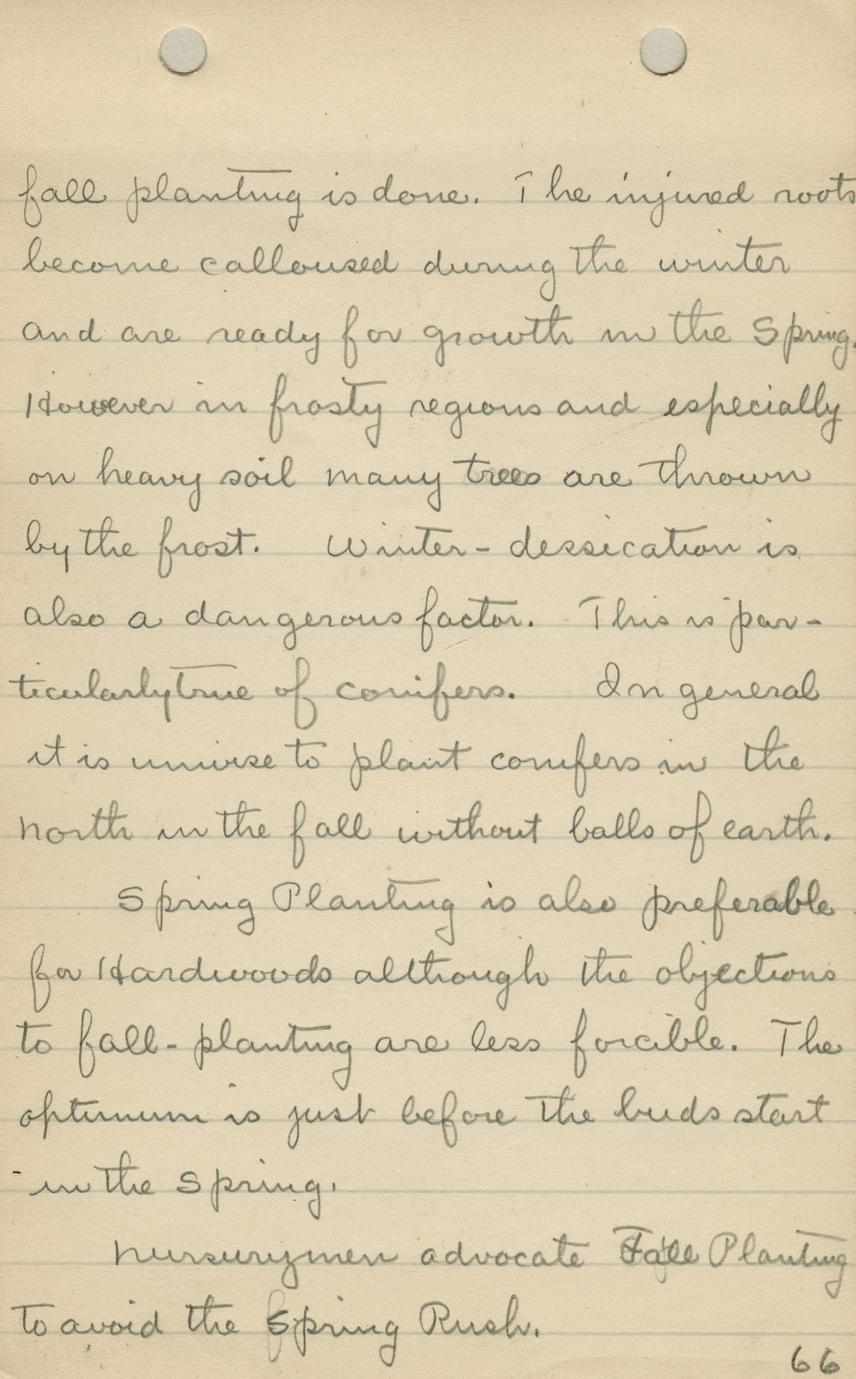 fall planting is done. The injured roots
become calloused during the winter
and are ready for growth in the Spring.
However in frosty regions and especially
on heavy soil many trees are thrown
by the frost. Winter-dessication is
also a dangerous factor. This is par-
ticularly true of conifers. In general
it is unwise to plant conifers in the
north in the fall without balls of earth.
Spring Planting is also preferable
for Hardwoods although the objections
to fall-planting are less forcible. The
optimum is just before the buds start
in the Spring.
Nurserymen advocate Fall Planting
to avoid the Spring Rush.
66